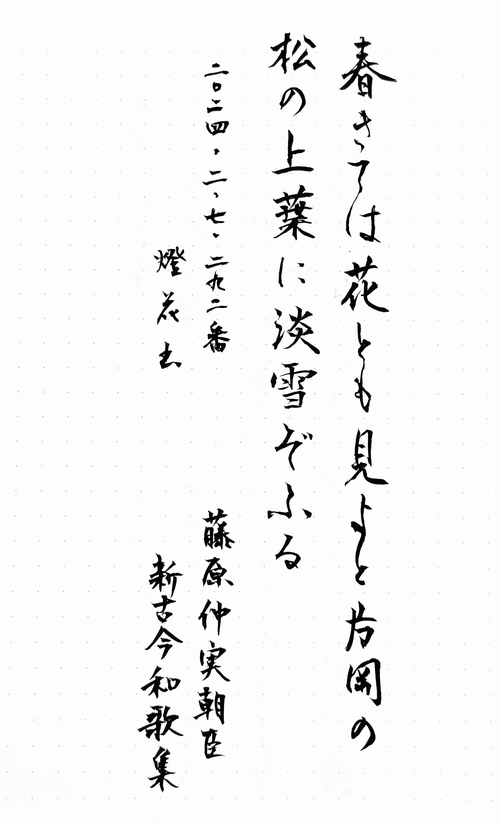 春きては花とも見よと片岡の
松の上葉に淡雪ぞふる
二〇二四・二・七・二九二番
燈花书
藤原仲実朝臣
新古今和歌集